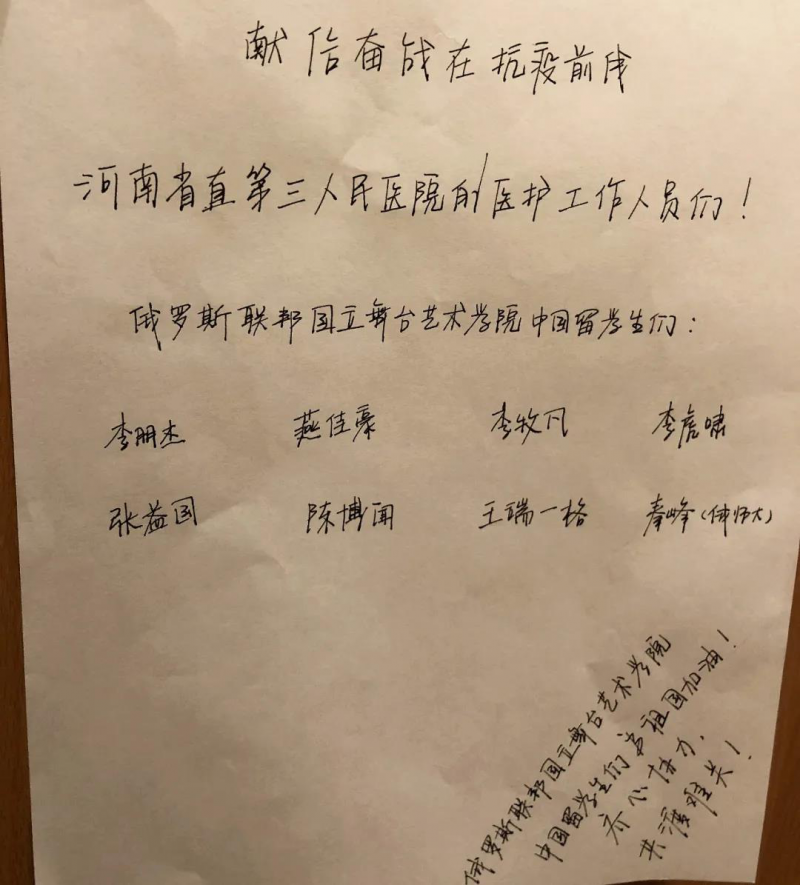 献给奋战在抗疫前线
河南省直第三人民医院的医护工作人员们！
俄罗斯联邦国立舞台艺术学院中国留学生们：
李朋杰 燕佳豪 李牧凡 李虎啸
张益国 陈博闻 王瑞一格 秦峰（师大）
俄罗斯联邦国立舞台艺术学院
中国留学生们为祖国加油！
齐心协力，
共渡难关！